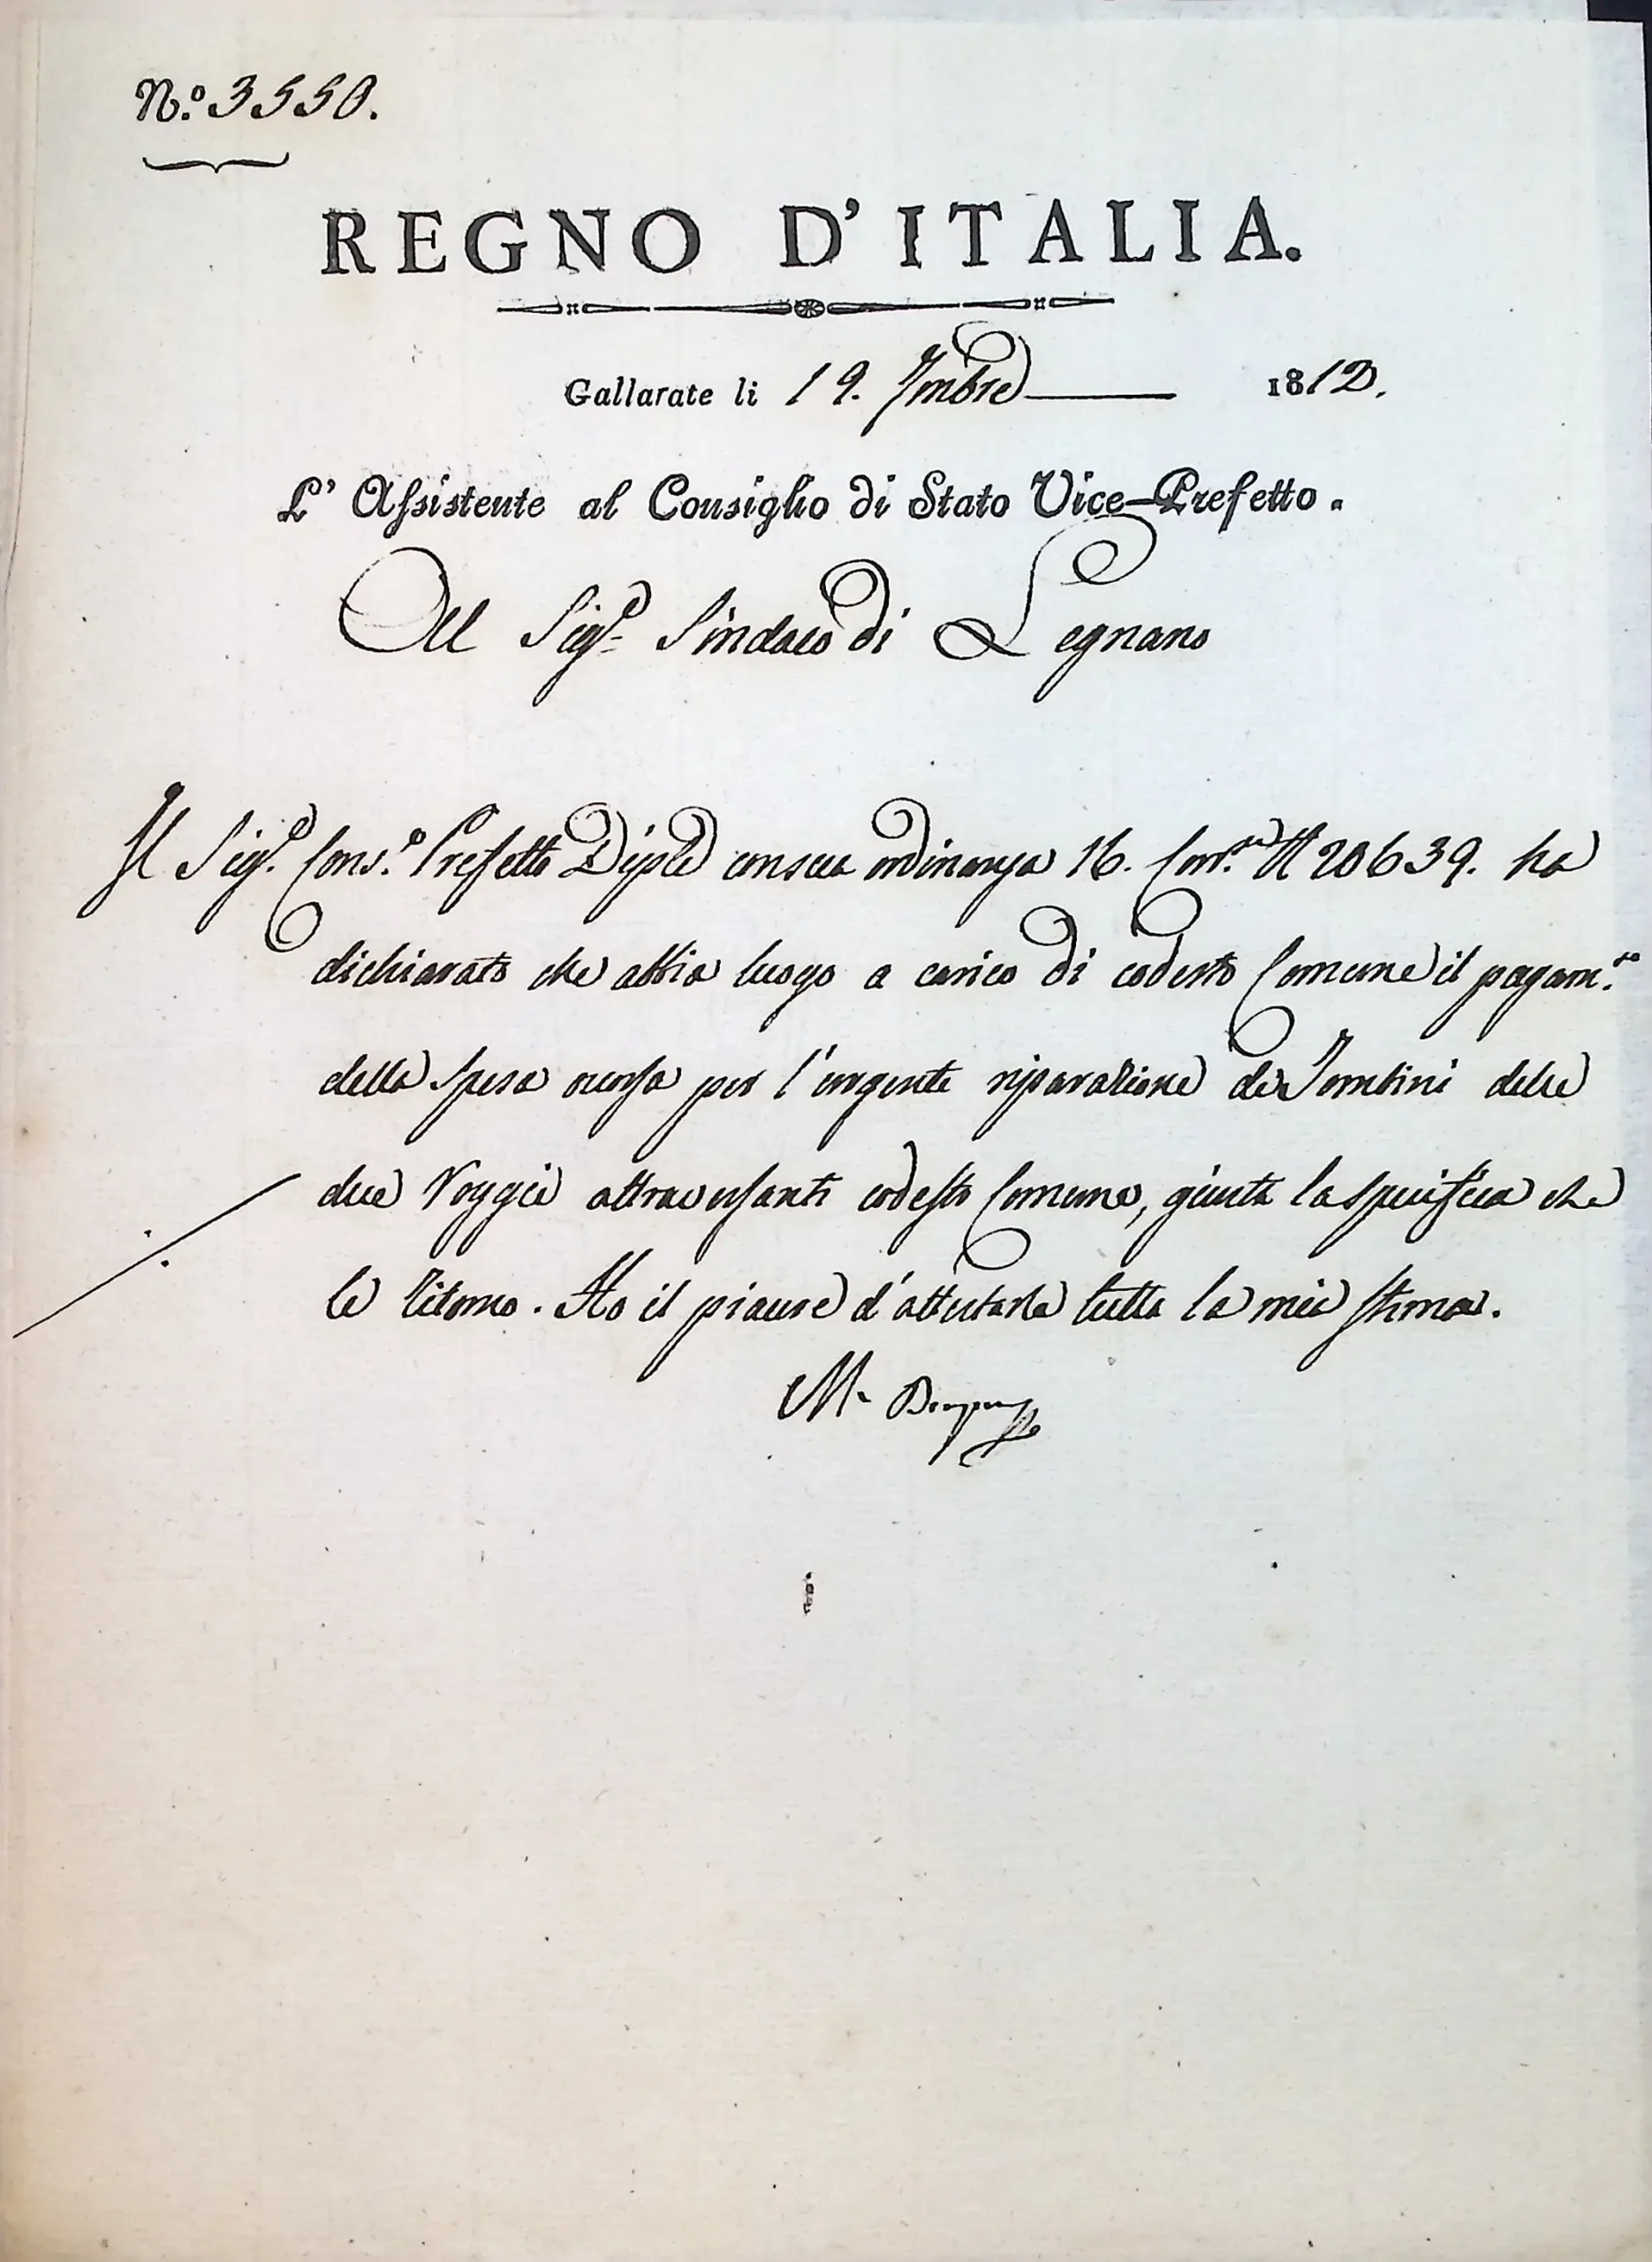 N.º 3550.
REGNO D'ITALIA.
Gallarate li 19. 7mbre 1812.
L' Assistente al Consiglio di Stato Vice-Prefetto.
Al Sigr. Sindaco di Legnano
Il Sigr. Cons.e Prefetto Diple con sua ordinanza 16. Corr.te N 20639. ha
dichiarato che abbia luogo a carico di codesto Comune il pagam.to
della spesa occorsa per l'urgente riparazione de Tombini delle
due Roggie attraversanti codesto Comune, giusta la specifica che
le ritorno. Ho il piacere d'attestarle tutta la mia stima.
M.